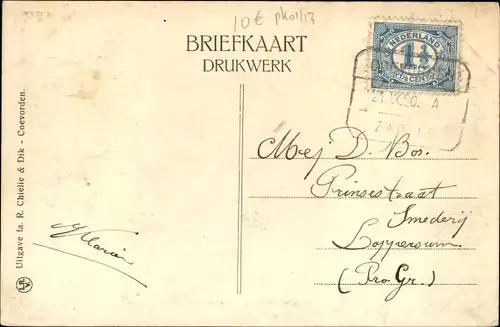 10€ pk01/13
BRIEFKAART
DRUKWERK
NEDERLAND
1½
1½ CENT
21.IX. 0. A
Mej D. Bos.
Prinsestraat
Smederij
Loppersum
(Pro Gr.)
Uitgave fa. R. Chielie & Dik - Coevorden.